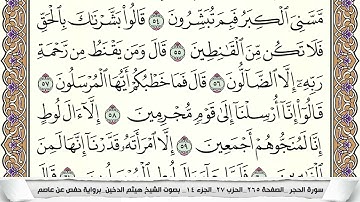 مَّسَّنِىَ ٱلْكِبَرُ فَبِمَ تُبَشِّرُونَ ٥٤ قَالُوا۟ بَشَّرْنَٰكَ بِٱلْحَقِّ
فَلَا تَكُن مِّنَ ٱلْقَٰنِطِينَ ٥٥ قَالَ وَمَن يَقْنَطُ مِن رَّحْمَةِ
رَبِّهِۦٓ إِلَّا ٱلضَّآلُّونَ ٥٦ قَالَ فَمَا خَطْبُكُمْ أَيُّهَا ٱلْمُرْسَلُونَ ٥٧
قَالُوٓا۟ إِنَّآ أُرْسِلْنَآ إِلَىٰ قَوْمٍ مُّجْرِمِينَ ٥٨ إِلَّآ ءَالَ لُوطٍ
إِنَّا لَمُنَجُّوهُمْ أَجْمَعِينَ ٥٩ إِلَّا ٱمْرَأَتَهُۥ قَدَّرْنَآ إِنَّهَا لَمِنَ
سورة الحجر _الصفحة ٢٦٥_ الحزب ٢٧_ الجزء ١٤_ بصوت الشيخ هيثم الدخين_ برواية حفص عن عاصم